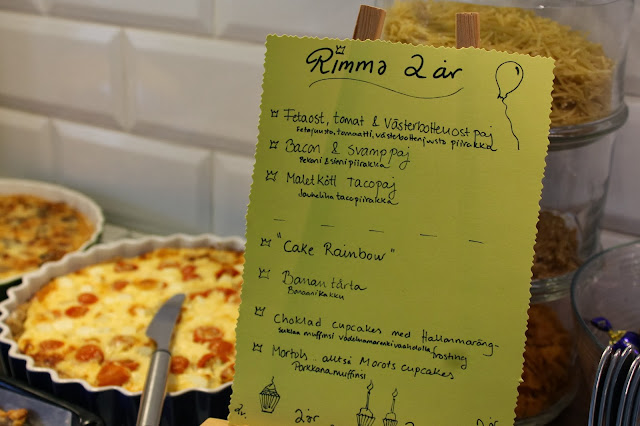 Rimma 2 år
Fetaost, tomat & Västerbottenost paj
Fetajuusto, tomaatti, västerbottenjuusto piirakka
Bacon & svamp paj
Pekoni & sieni piirakka
Malet kött Tacopaj
Jauheliha tacopiirakka
"Cake Rainbow"
Banan tårta
Banaani kakku
Choklad cupcakes med Hallonmaräng-
frosting
Suklaa muffinsi vadelmamarenki
Morots cupcakes
Porkkana muffinsi
2 år